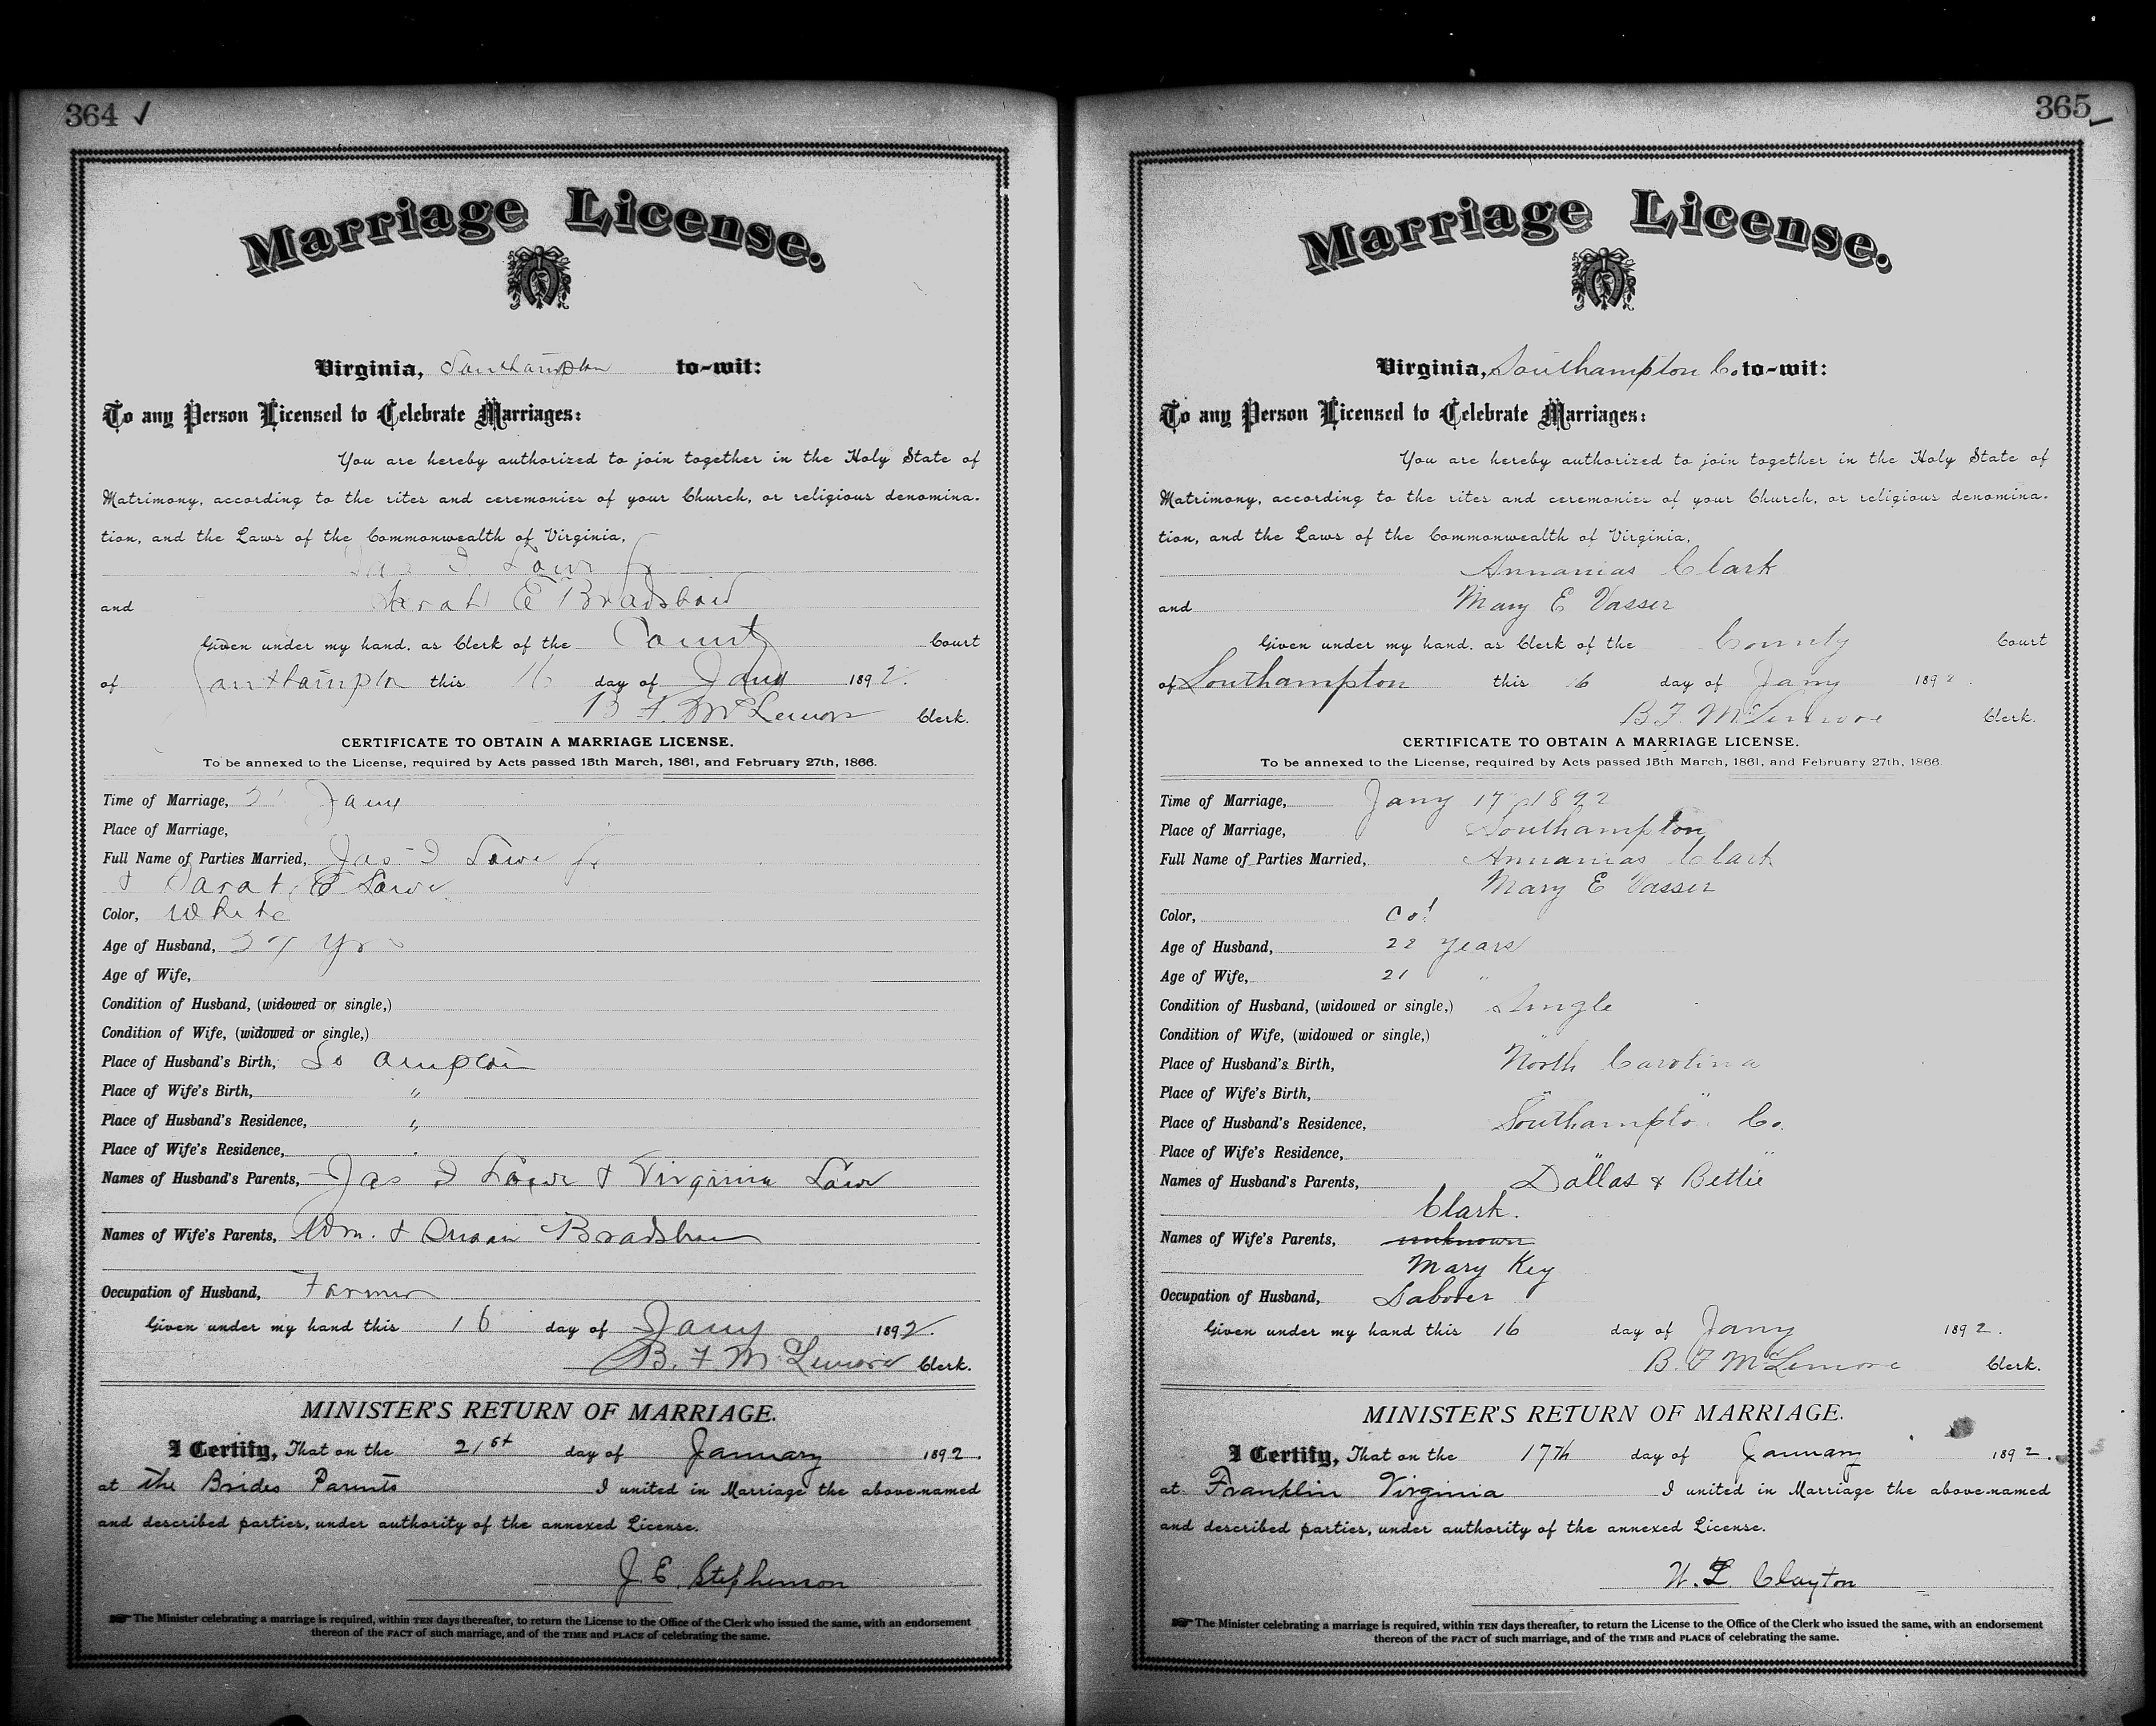 364 ✓
Marriage License.
Virginia, Southampton to-wit:
To any Person Licensed to Celebrate Marriages:
You are hereby authorized to join together in the Holy State of
Matrimony, according to the rites and ceremonies of your Church, or religious denomina-
tion, and the Laws of the Commonwealth of Virginia,
Jas I. Lowe Jr
and Sarah E
Given under my hand, as Clerk of the County Court
of Southampton this 16 day of Jany 1892.
B F. McLemore Clerk.
CERTIFICATE TO OBTAIN A MARRIAGE LICENSE.
To be annexed to the License, required by Acts passed 15th March, 1861, and February 27th, 1866.
Time of Marriage, Jany
Place of Marriage,
Full Name of Parties Married, Jas I Lowe Jr
& Sarah E Lowe
Color, White
Age of Husband, yrs
Age of Wife,
Condition of Husband, (widowed or single,)
Condition of Wife, (widowed or single,)
Place of Husband's Birth, So ampton
Place of Wife's Birth, "
Place of Husband's Residence, "
Place of Wife's Residence,
Names of Husband's Parents, Jas I Lowe & Virginia Lowe
Names of Wife's Parents, Wm. & Susan Bradshaw
Occupation of Husband, Farmer
Given under my hand this 16 day of Jany 1892.
B. F. McLemore Clerk.
MINISTER'S RETURN OF MARRIAGE.
I Certify, That on the 21st day of January 1892.
at the Brides Parents I united in Marriage the above-named
and described parties, under authority of the annexed License.
J. E. Stephenson
The Minister celebrating a marriage is required, within TEN days thereafter, to return the License to the Office of the Clerk who issued the same, with an endorsement
thereon of the FACT of such marriage, and of the TIME and PLACE of celebrating the same.
365
Marriage License.
Virginia, Southampton Co. to-wit:
To any Person Licensed to Celebrate Marriages:
You are hereby authorized to join together in the Holy State of
Matrimony, according to the rites and ceremonies of your Church, or religious denomina-
tion, and the Laws of the Commonwealth of Virginia,
Annanias Clark
and Mary E Vasser
Given under my hand, as Clerk of the County Court
of Southampton this 16 day of Jany 1892.
B. F. McLemore Clerk.
CERTIFICATE TO OBTAIN A MARRIAGE LICENSE.
To be annexed to the License, required by Acts passed 15th March, 1861, and February 27th, 1866.
Time of Marriage, Jany 17 1892
Place of Marriage, Southampton
Full Name of Parties Married, Annanias Clark
Mary E Vasser
Color, Col
Age of Husband, 22 years
Age of Wife, 21 "
Condition of Husband, (widowed or single,) Single
Condition of Wife, (widowed or single,) "
Place of Husband's Birth, North Carolina
Place of Wife's Birth, " "
Place of Husband's Residence, Southampto Co.
Place of Wife's Residence, " "
Names of Husband's Parents, Dallas & Bettie
Clark.
Names of Wife's Parents, unknown
Mary Key
Occupation of Husband, Laborer
Given under my hand this 16 day of Jany 1892.
B. F McLemore Clerk.
MINISTER'S RETURN OF MARRIAGE.
I Certify, That on the 17th day of January 1892.
at Franklin Virginia I united in Marriage the above-named
and described parties, under authority of the annexed License.
W. L Clayton
The Minister celebrating a marriage is required, within TEN days thereafter, to return the License to the Office of the Clerk who issued the same, with an endorsement
thereon of the FACT of such marriage, and of the TIME and PLACE of celebrating the same.